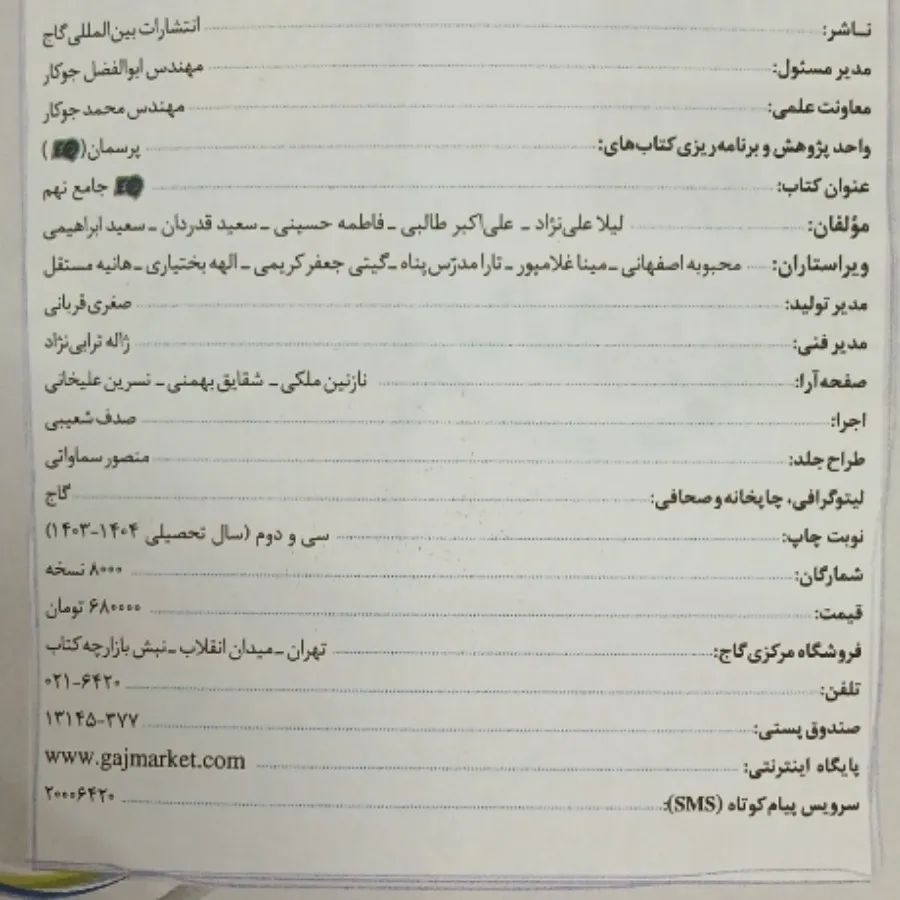 ناشر: انتشارات بین‌المللی گاج
مدیر مسئول: مهندس ابوالفضل جوکار
معاونت علمی: مهندس محمد جوکار
واحد پژوهش و برنامه‌ریزی کتاب‌های: پرسمان( )
عنوان کتاب: جامع نهم
مؤلفان: لیلا علی‌نژاد ـ علی‌اکبر طالبی ـ فاطمه حسینی ـ سعید قدردان ـ سعید ابراهیمی
ویراستاران: محبوبه اصفهانی ـ مینا غلامپور ـ تارا مدرّس‌پناه ـ گیتی جعفر کریمی ـ الهه بختیاری ـ هانیه مستقل
مدیر تولید: صغری قربانی
مدیر فنی: ژاله ترابی‌نژاد
صفحه‌آرا: نازنین ملکی ـ شقایق بهمنی ـ نسرین علیخانی
اجرا: صدف شعیبی
طراح جلد: منصور سماواتی
لیتوگرافی، چاپخانه و صحافی: گاج
نوبت چاپ: سی و دوم (سال تحصیلی ۱۴۰۴-۱۴۰۳)
شمارگان: ۸۰۰۰ نسخه
قیمت: ۶۸۰۰۰۰ تومان
فروشگاه مرکزی گاج: تهران ـ میدان انقلاب ـ نبش بازارچه کتاب
تلفن: ۰۲۱-۶۴۲۰
صندوق پستی: ۱۳۱۴۵-۳۷۷
پایگاه اینترنتی: www.gajmarket.com
سرویس پیام کوتاه (SMS): ۲۰۰۰۶۴۲۰